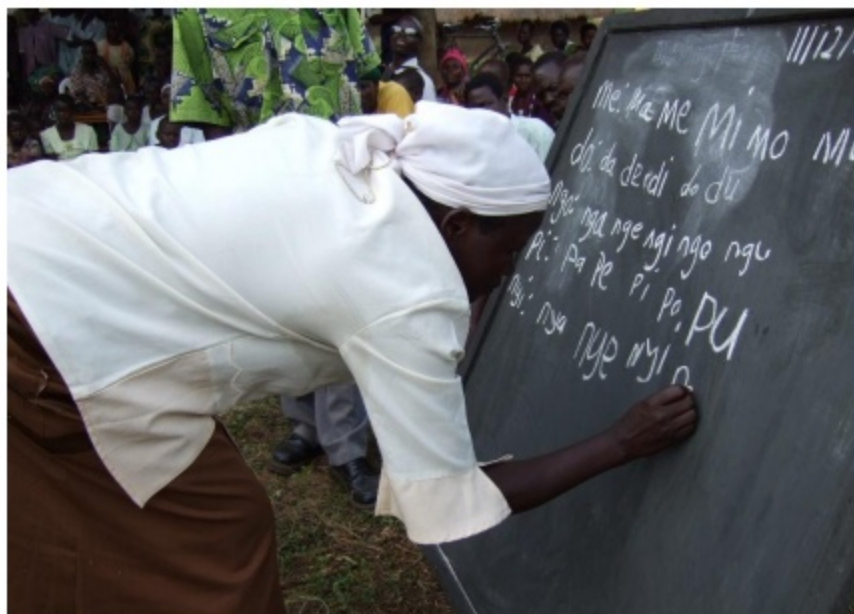 11/12/
me: ma me Mi mo mu
di: da de di do du
nga: nga nge ngi ngo ngu
pi: pa pe pi po pu
nyi: nya nye nyi n